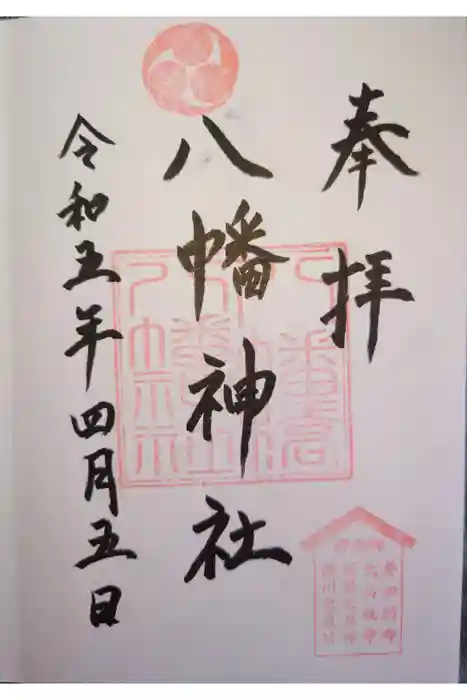 奉拝
八幡神社
令和五年四月五日